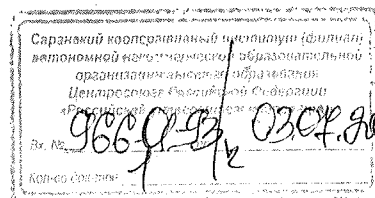 Саранский кооперативный институт (филиал)
автономной некоммерческой образовательной
организации высшего образования
Центросоюза Российской Федерации
«Российский университет кооперации»
Вх. № 966-01-93/ 03.07.20
Кол-во